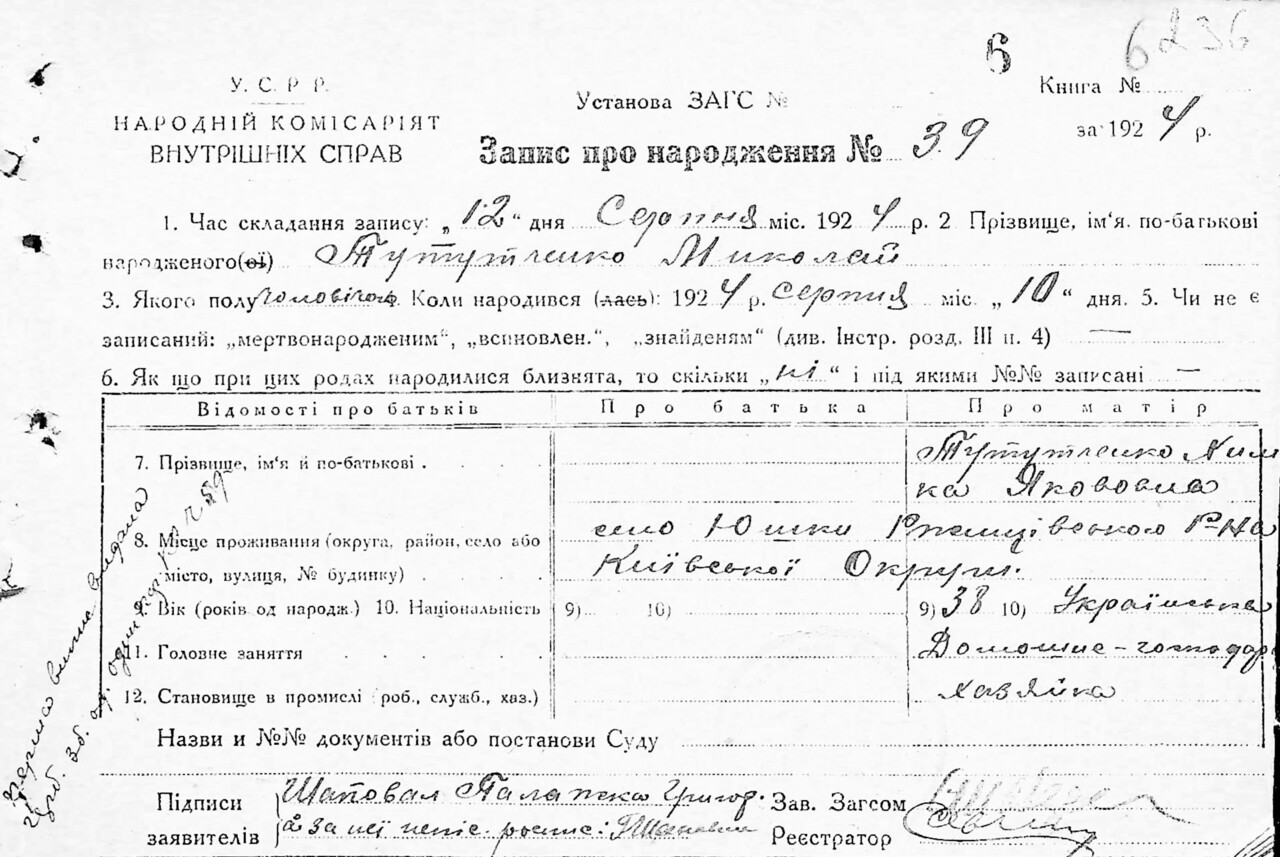 6 6236
У. С. Р. Р.
НАРОДНІЙ КОМІСАРІЯТ
ВНУТРІШНІХ СПРАВ
Установа ЗАГС №
Книга №
за 1924 р.
Запис про народження № 39
1. Час складання запису: „12“ дня Серпня міс. 1924 р. 2 Прізвище, ім'я. по-батькові
народженого(ої) Тутутченко Миколай
3. Якого полу чоловічого. Коли народився (лась): 1924 р. серпня міс. „10“ дня. 5. Чи не є
записаний: „мертвонародженим“, „всиновлен.“, „знайденям“ (див. Інстр. розд. III п. 4) —
6. Як що при цих родах народилися близнята, то скільки „ні“ і під якими №№ записані —
Відомості про батьків Про батька Про матір
7. Прізвище, ім'я й по-батькові . Тутутченко
ка Якововна
8. Місце проживання (округа, район, село або село Юшки Ржищівського Р-на
місто, вулиця, № будинку) Київської Округи.
9. Вік (років од народж.) 10. Національність 9) 10) 9) 38 10) Українська
11. Головне заняття Домошнє-господар
12. Становище в промислі (роб., служб., хаз.) хазяйка
Назви и №№ документів або постанови Суду
Підписи Шаповал Палажка Григор. Зав. Загсом
заявителів а за неї непис. роспис: Реєстратор